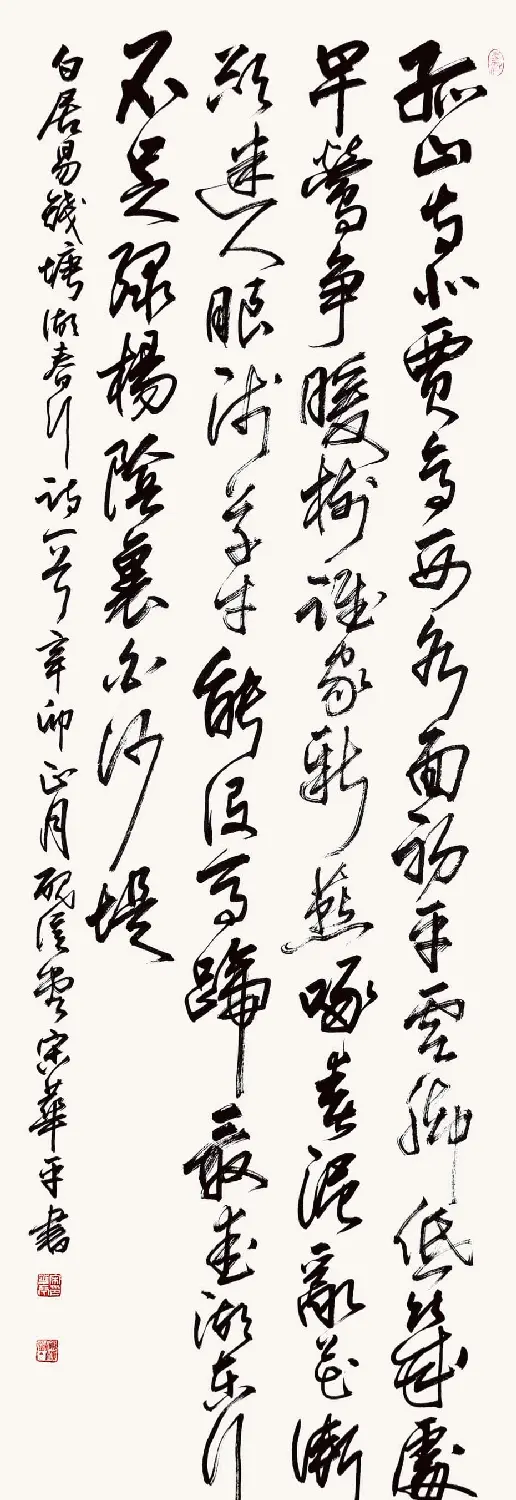 孤山寺北賈亭西水面初平雲腳低幾處
早鶯争暖樹誰家新燕啄春泥亂花漸
欲迷人眼淺草才能没馬蹄最愛湖東行
不足绿楊陰裏白沙堤
白居易錢塘湖春行詩一首辛卯正月硯溪堂宋華平書